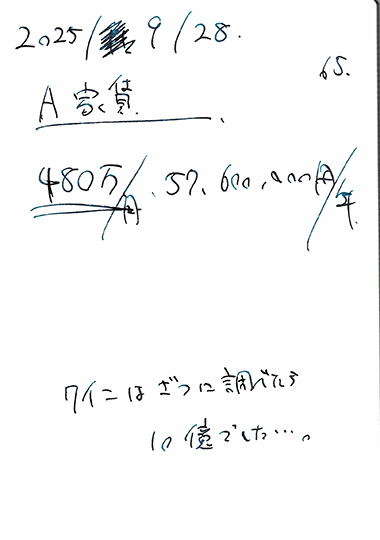 2025/9/28.
65.
A 家賃.
480万/月、57,600,000円/年
ワインはざっと調べたら
10億でした…。